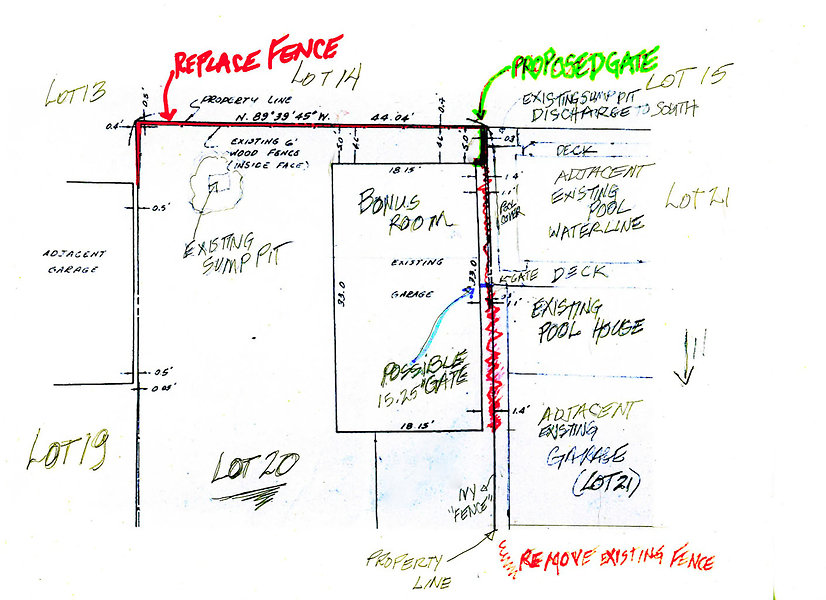 REPLACE FENCE
LOT 14
PROPOSED GATE
LOT 15
LOT 13
0.5'
PROPERTY LINE
N. 89°39'45" W.
44.04'
0.4'
EXISTING SUMP PIT
DISCHARGE TO SOUTH
EXISTING 6'
WOOD FENCE
(INSIDE FACE)
5.0'
5.0'
DECK
18.15'
1.4'
1.1'
ADJACENT
EXISTING
POOL
WATERLINE
LOT 21
BONUS
ROOM
POOL
COVER
0.5'
EXISTING
SUMP PIT
ADJACENT
GARAGE
EXISTING
GARAGE
33.0
33.0
GATE
DECK
EXISTING
POOL HOUSE
POSSIBLE
15.25" GATE
0.5'
18.15'
1.4'
ADJACENT
EXISTING
GARAGE
(LOT 21)
LOT 19
LOT 20
IVY
"FENCE"
PROPERTY
LINE
REMOVE EXISTING FENCE